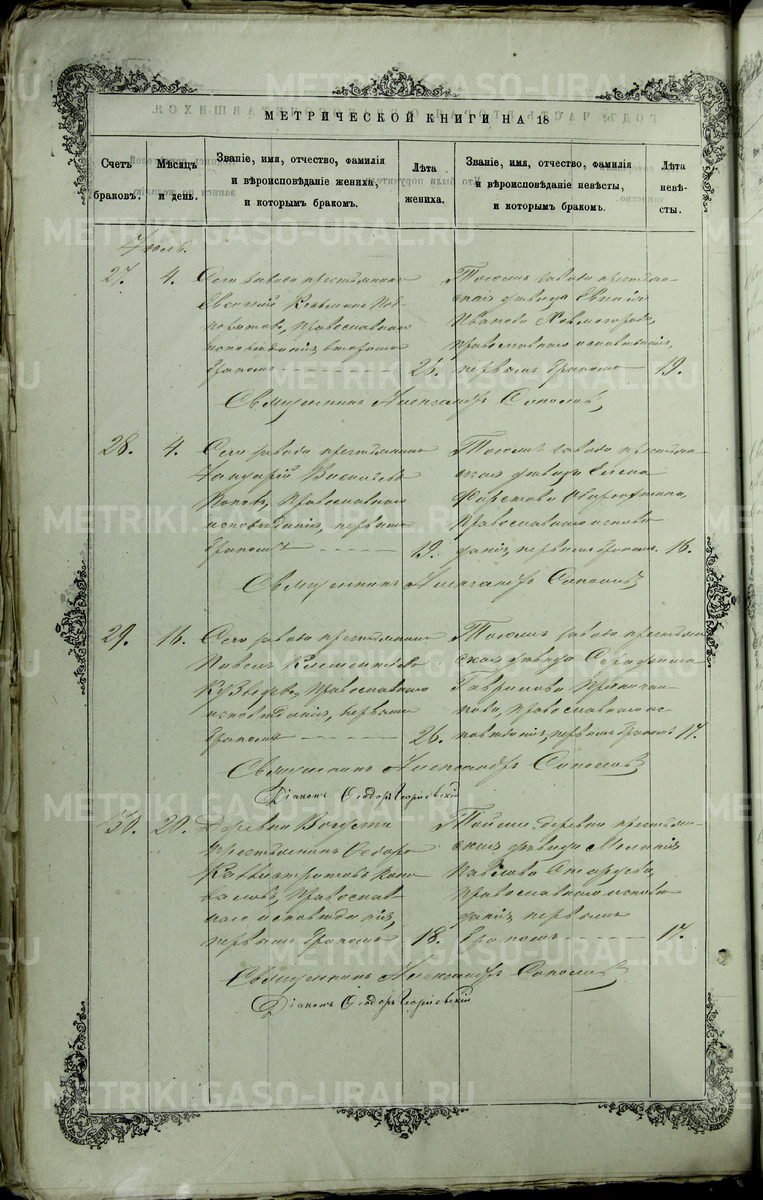 METRIKI.GASO-URAL.RU
МЕТРИЧЕСКОЙ КНИГИ НА 18
Счетъ браковъ.
Мѣсяцъ и день.
Званіе, имя, отчество, фамилія и вѣроисповѣданіе жениха, и которымъ бракомъ.
Лѣта жениха.
Званіе, имя, отчество, фамилія и вѣроисповѣданіе невѣсты, и которымъ бракомъ.
Лѣта невѣсты.
Іюль.
27. 4.
Сего завода крестьянинъ
православнаго
исповѣданія, вторымъ
бракомъ
Тогожъ завода крестьян-
ская дѣвица
Иванова
православнаго исповѣданія,
первымъ бракомъ 19.
Священникъ Александръ Соколовъ
28. 4.
Сего завода крестьянинъ
Василіевъ
Поповъ, православнаго
исповѣданія, первымъ
бракомъ 19.
Тогожъ завода крестьян-
ская дѣвица Елена
православнаго исповѣ-
данія, первымъ бракомъ 16.
Священникъ Александръ Соколовъ
29. 16.
Сего завода крестьянинъ
Павелъ Климентовъ
православнаго
исповѣданія, первымъ
бракомъ 26.
Тогожъ завода крестьян-
ская дѣвица Серафима
Гаврилова
православнаго ис-
повѣданія, первымъ бракомъ 17.
Священникъ Александръ Соколовъ
Діаконъ Ѳеодоръ Георгіевскій
30. 20.
Деревни
крестьянинъ Ѳедоръ
православ-
наго исповѣданія,
первымъ бракомъ 18.
Тойже деревни крестьян-
ская дѣвица Меланія
Павлова
православнаго исповѣ-
данія первымъ
бракомъ 17.
Священникъ Александръ Соколовъ
Діаконъ Ѳеодоръ Георгіевскій